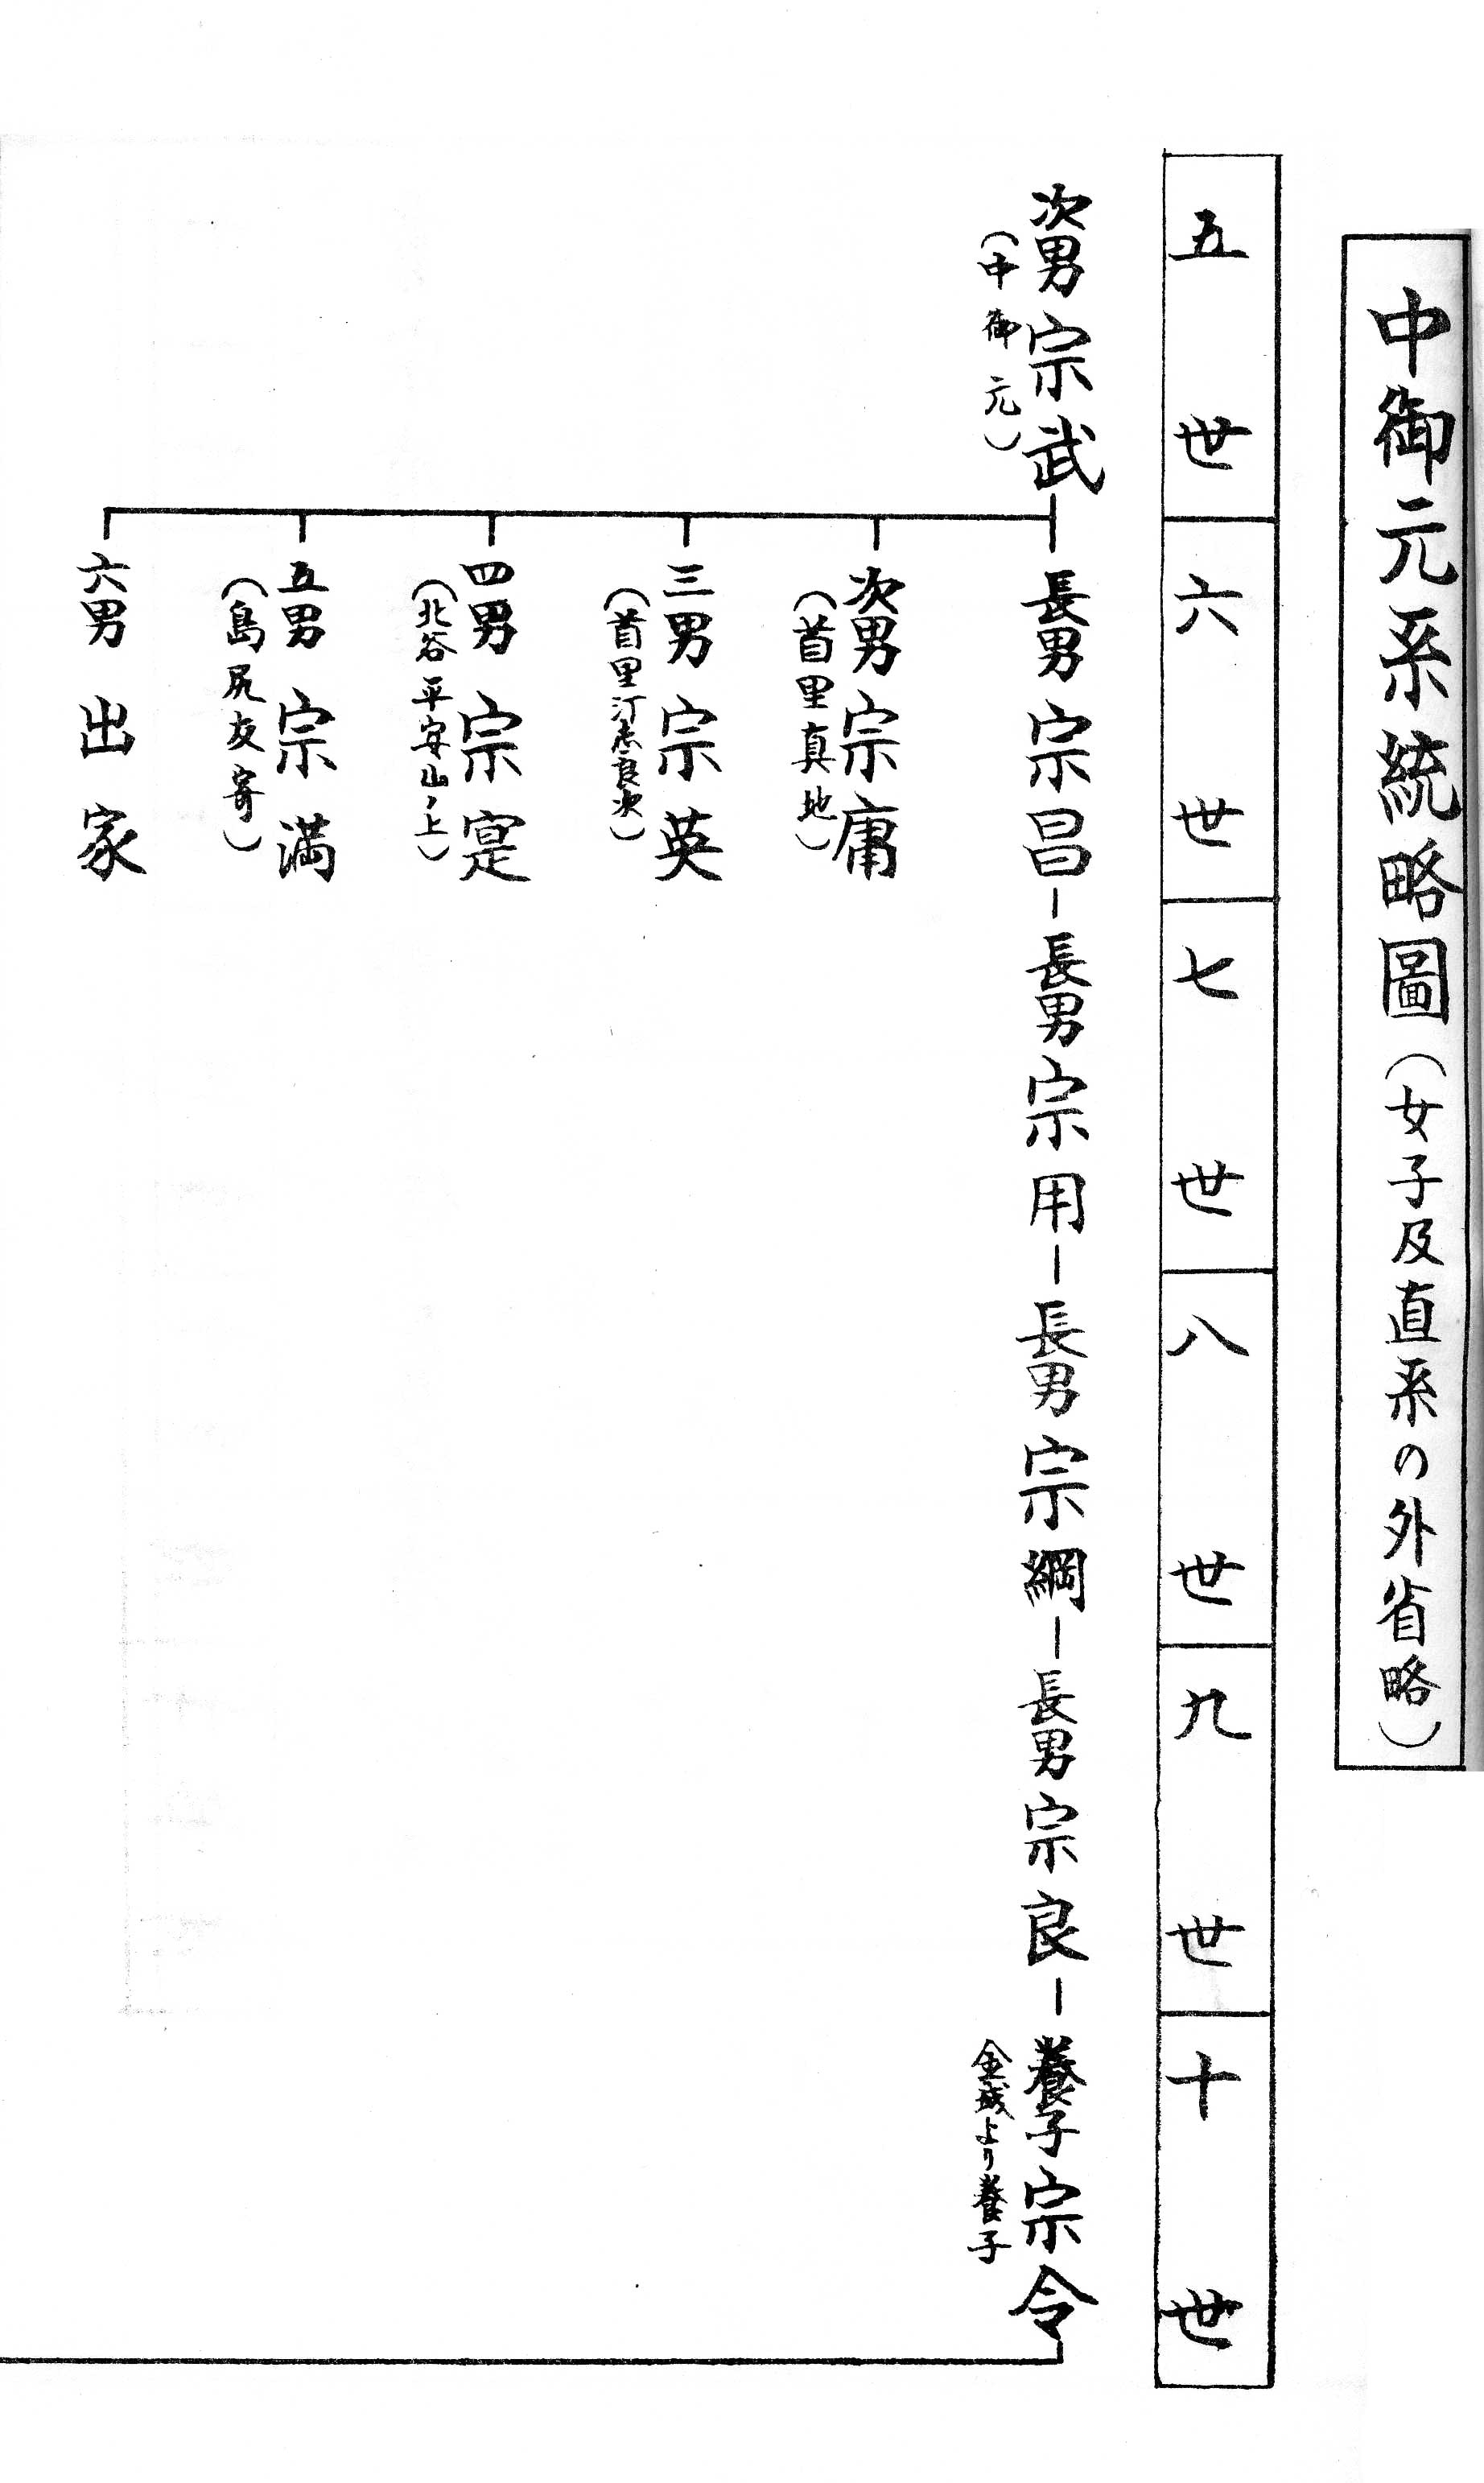 中御元系統略圖(女子及直系の外省略)
五世
六世
七世
八世
九世
十世
次男 宗武
(中御元)
長男 宗昌
長男 宗用
長男 宗綱
長男 宗良
養子 宗令
金城より養子
次男 宗庸
(首里真地)
三男 宗英
(首里汀志良次)
四男 宗寔
(北谷平安山ノ上)
五男 宗満
(島尻友寄)
六男 出家